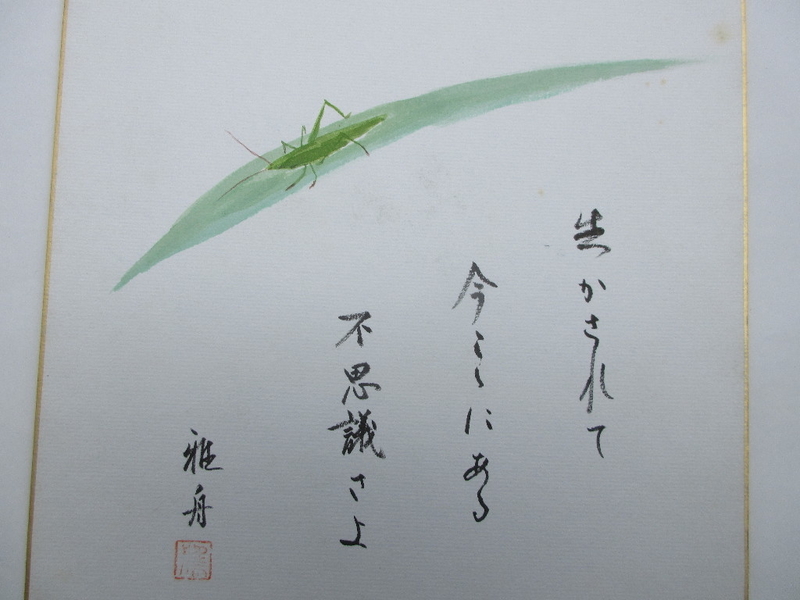 生かされて
今ここにある
不思議さよ
雅舟